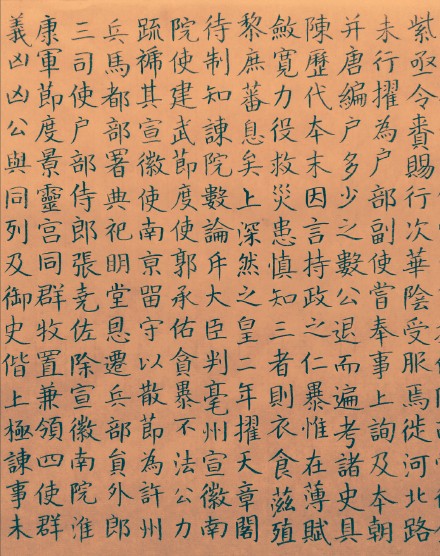 紫亟令賚賜行次華陰受服焉徙河北路
未行擢為户部副使嘗奉事上詢及本朝
并唐編户多少之數公退而遍考諸史具
陳歷代本末因言持政之仁暴惟在薄賦
斂寬力役救災患慎知三者則衣食滋殖
黎庶蕃息矣上深然之皇二年擢天章閣
待制知諫院數論斥大臣判亳州宣徽南
院使建武節度使郭承佑貪暴不法公力
疏褫其宣徽使南京留守以散節為許州
兵馬都部署典祀明堂恩遷兵部員外郎
三司使户部侍郎張堯佐除宣徽南院淮
康軍節度景靈宫同群牧置兼領四使群
義凶凶公與同列及御史偕上極諫事未